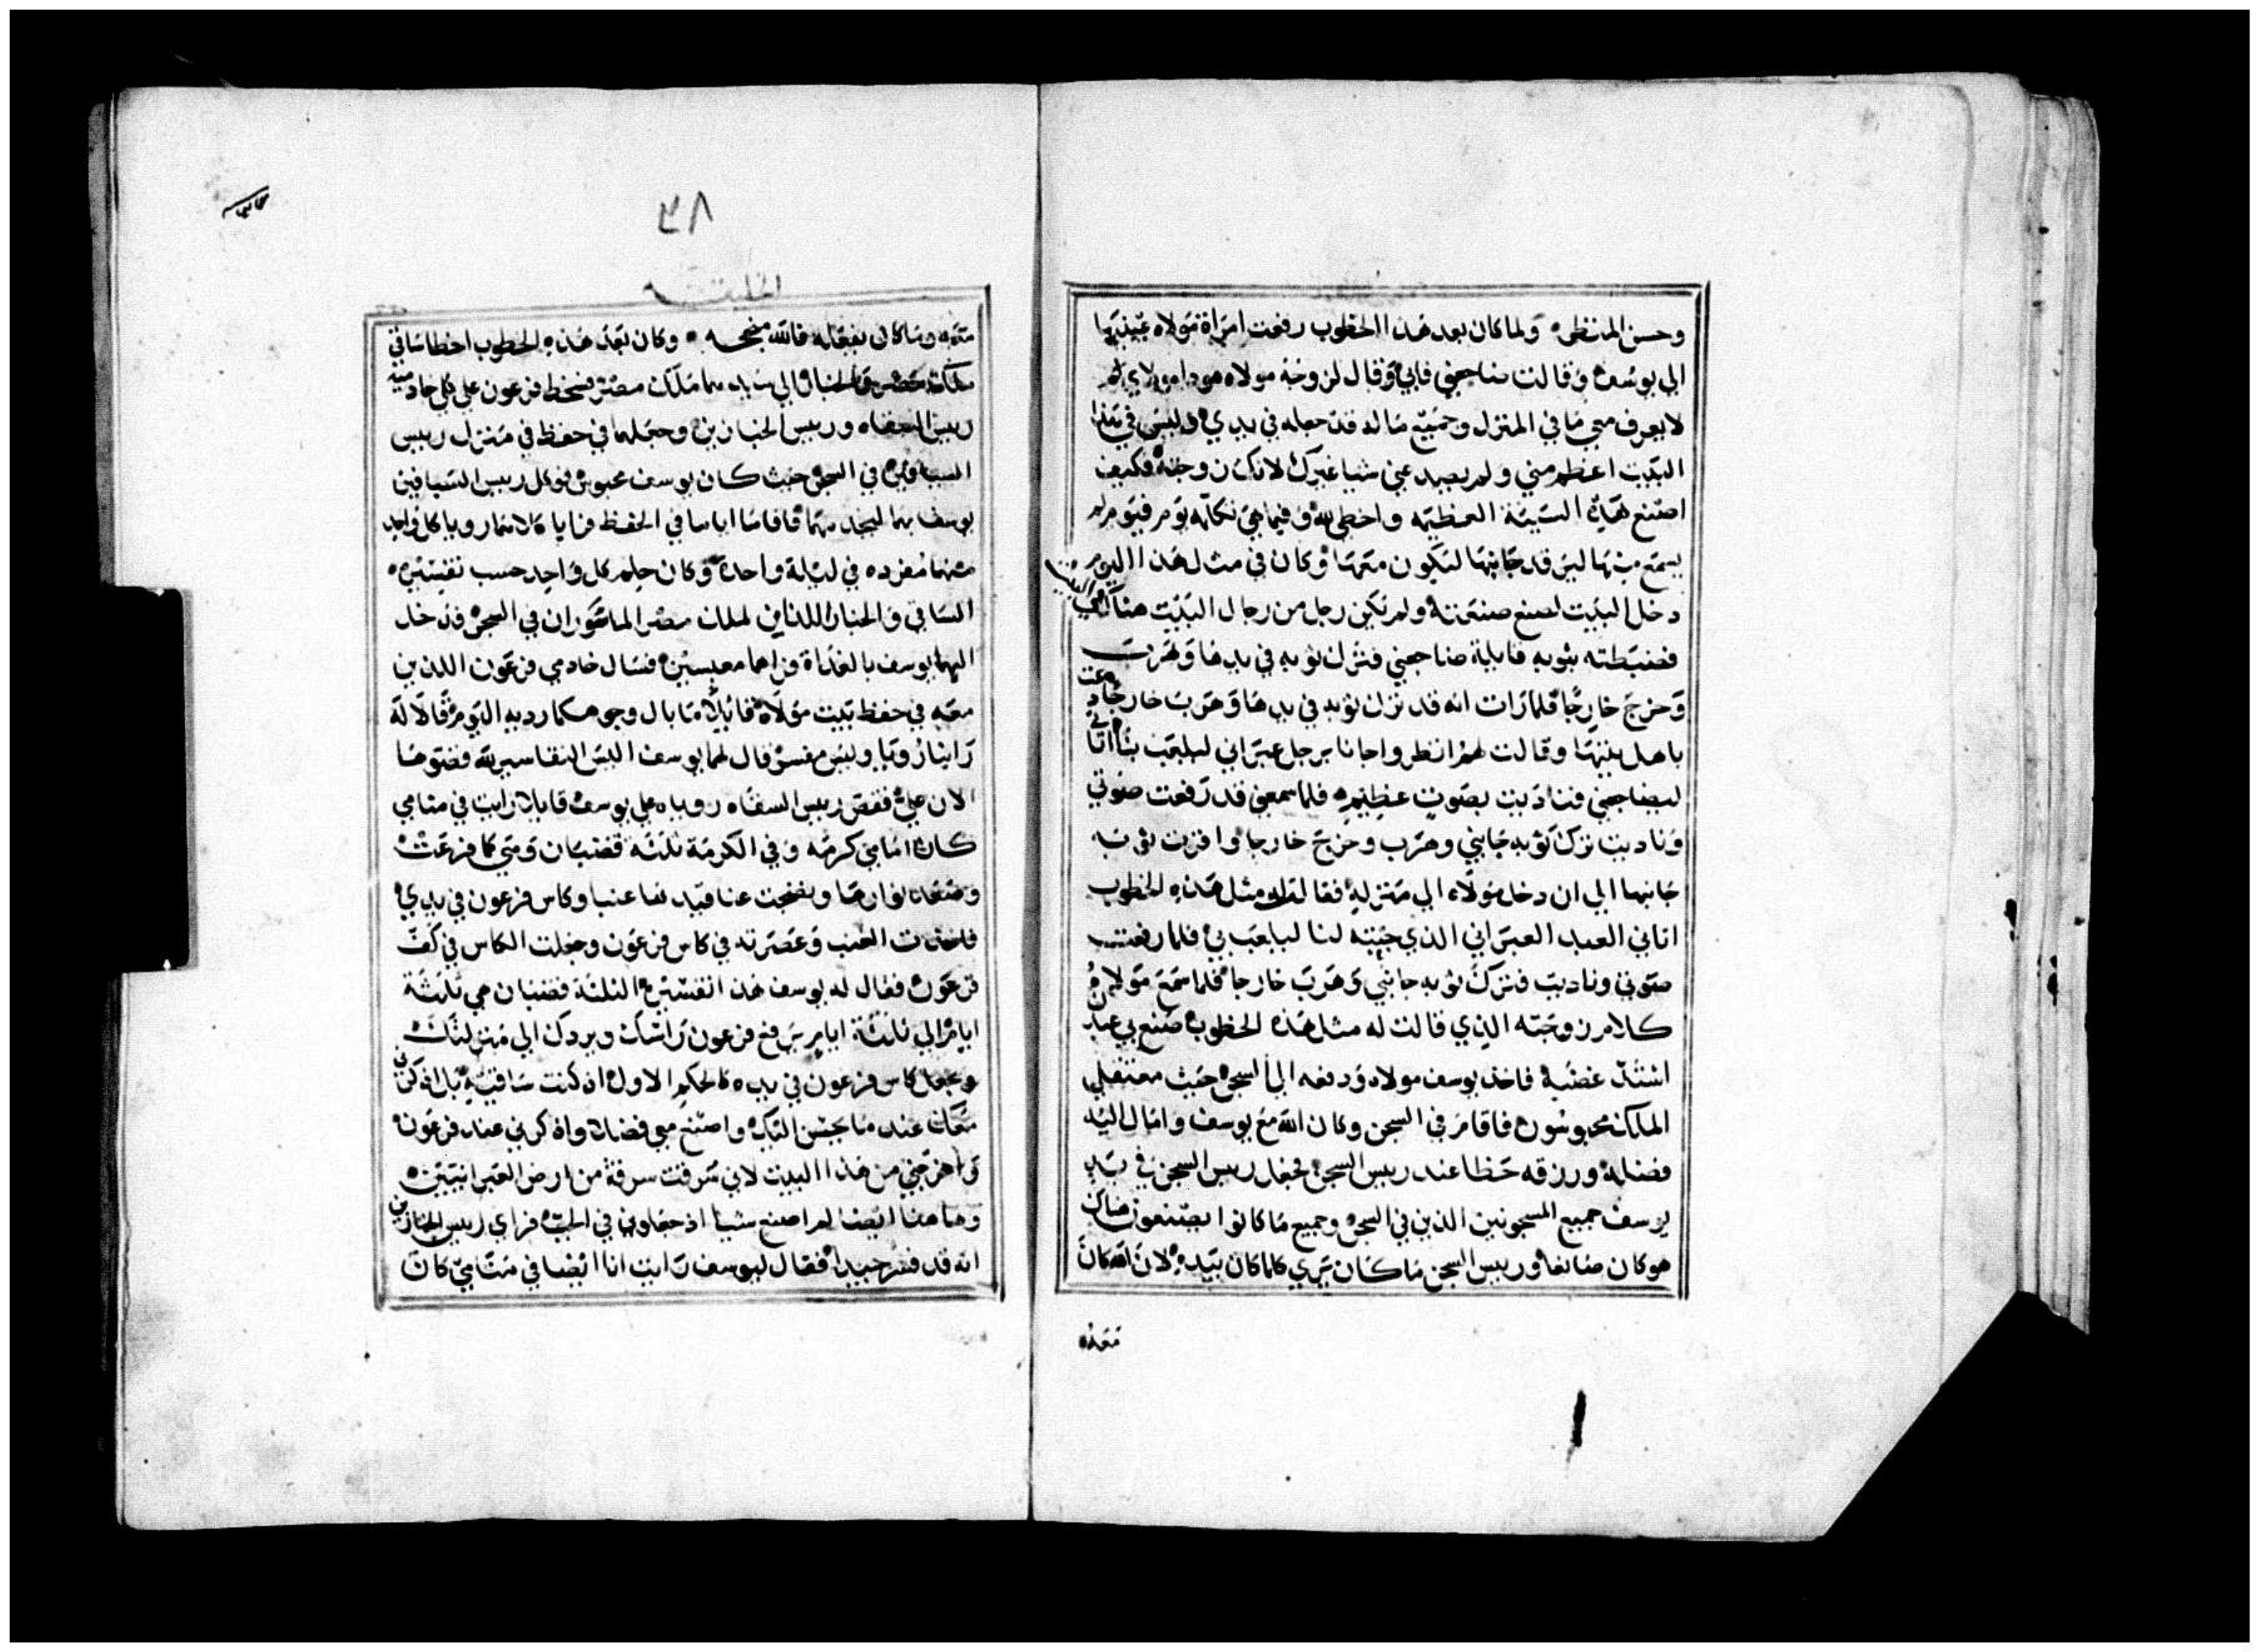 وحسن المنظر ولما كان بعد هذا الخطوب رفعت امراة مولاه عينيها
الي يوسف وقالت ضاجعني فابي وقال لزوجة مولاه هوذا مولاي
لا يعرف معي ما في المنزل وجميع ماله قد جعله في يدي وليس في هذا
البيت اعظم مني ولم يصد عني شيا غيرك لانك زوجته فكيف
اصنع هذه السيئة العظيمه واخطي لله وفيما هي تكلمه يوم فيوم لم
يسمع منها ليرقد جانبها ليكون معها وكان في مثل هذا اليوم
دخل البيت ليصنع صنعته ولم يكن رجل من رجال البيت هناك في البيت
فضبطته بثوبه قايلة ضاجعني فترك ثوبه في يدها وهرب
وخرج خارجا فلما رات انه قد ترك ثوبه في يدها وهرب خارجا دعت
باهل بيتها وقالت لهم انظروا جانا برجل عبراني ليلعب بنا اتا الي
ليضاجعني فناديت بصوت عظيم فلما سمعني قد رفعت صوتي
وناديت ترك ثوبه جانبي وهرب وخرج خارجا وافرزت ثوبه
جانبها الي ان دخل مولاه الي منزله فقالت له مثل هذه الخطوب
اتاني العبد العبراني الذي جيته لنا ليلعب بي فلما رفعت
صوتي وناديت فترك ثوبه جانبي وهرب خارجا فلما سمع مولاه من
كلام زوجته الذي قالت له مثل هذه الخطوب صنع بي عبدك
اشتد غضبه فاخذ يوسف مولاه ودفعه الي السجن حيث معتقلي
الملك محبوسون فاقام في السجن وكان الله مع يوسف وامال اليه
فضله ورزقه حظا عند رييس السجن فجعل رييس السجن في يد
يوسف جميع المسجونين الذين في السجن وجميع ما كانوا يصنعون هناك
هو كان صانعا ورييس السجن ما كان يري كلما كان بيده لان الله كان
معه
٣٨
الخليقة
معه وما كان يفعله فالله منجحه وكان بعد هذه الخطوب اخطا ساقي
ملك مصر والخباز الي سيدهما ملك مصر فسخط فرعون علي كل خادميه
رييس السقاه ورييس الخبازين وجعلهما في حفظ في منزل رييس
السيافين في السجن حيث كان يوسف محبوس فوكل رييس السيافين
يوسف بهما ليخدمهما فاقاما اياما في الحفظ كل واحد
منهما مفرده في ليلة واحدة وكان حلم كل واحد حسب تفسيره
الساقي والخباز اللذان لملك مصر الماسوران في السجن فدخل
اليهما يوسف بالغداة فراهما معبسين فسال خادمي فرعون اللذين
معه في حفظ بيت مولاه قايلا ما بال وجوهكما رديه اليوم قالا له
راينا رويا وليس مفسر قال لهما يوسف اليس التفاسير لله فقصوها
الان علي فقص رييس السقاه روياه علي يوسف قايلا رايت في منامي
كان امامي كرمه وفي الكرمة ثلثة قضبان ومتي كما فرعت
وصعدت نوارها ونضجت عناقيدها عنبا وكاس فرعون في يدي
فاخذت العنب وعصرته في كاس فرعون وجعلت الكاس في كف
فرعون فقال له يوسف هذا تفسيره الثلثة قضبان هي ثلثة
ايام الي ثلثة ايام يرفع فرعون راسك ويردك الي منزلتك
وتجعل كاس فرعون في يده كالحكم الاول اذ كنت ساقيه بل اذكرني
معك عند ما يحسن اليك واصنع معي فضلا واذكرني عند فرعون
واخرجني من هذا البيت لاني سرقت سرقة من ارض العبرانيين
وهاهنا ايضا لم اصنع شيا اذ جعلوني في الجب فراي رييس الخبازين
انه قد فسر جيدا فقال ليوسف رايت انا ايضا في منامي كان